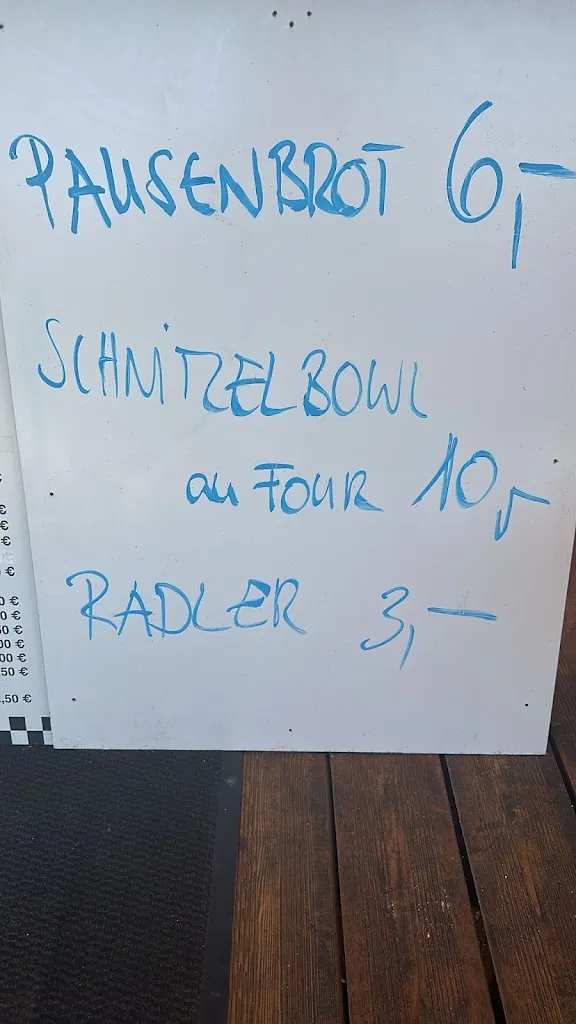 PAUSENBROT 6,-
SCHNITZELBOWL
au FOUR 10,-
RADLER 3,-
€
€
€
€
€
0 €
0 €
50 €
00 €
00 €
50 €
,50 €